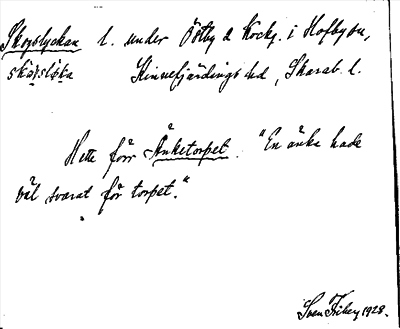 Skogslyckan l. under Östby 2 Kockg. i Hofby sn,
skå̀slø̀ka Kinnefjärdings hd, Skarab. l.
Hette förr Änketorpet. "En änka hade
väl svarat för torpet."
Sven Friberg 1928.